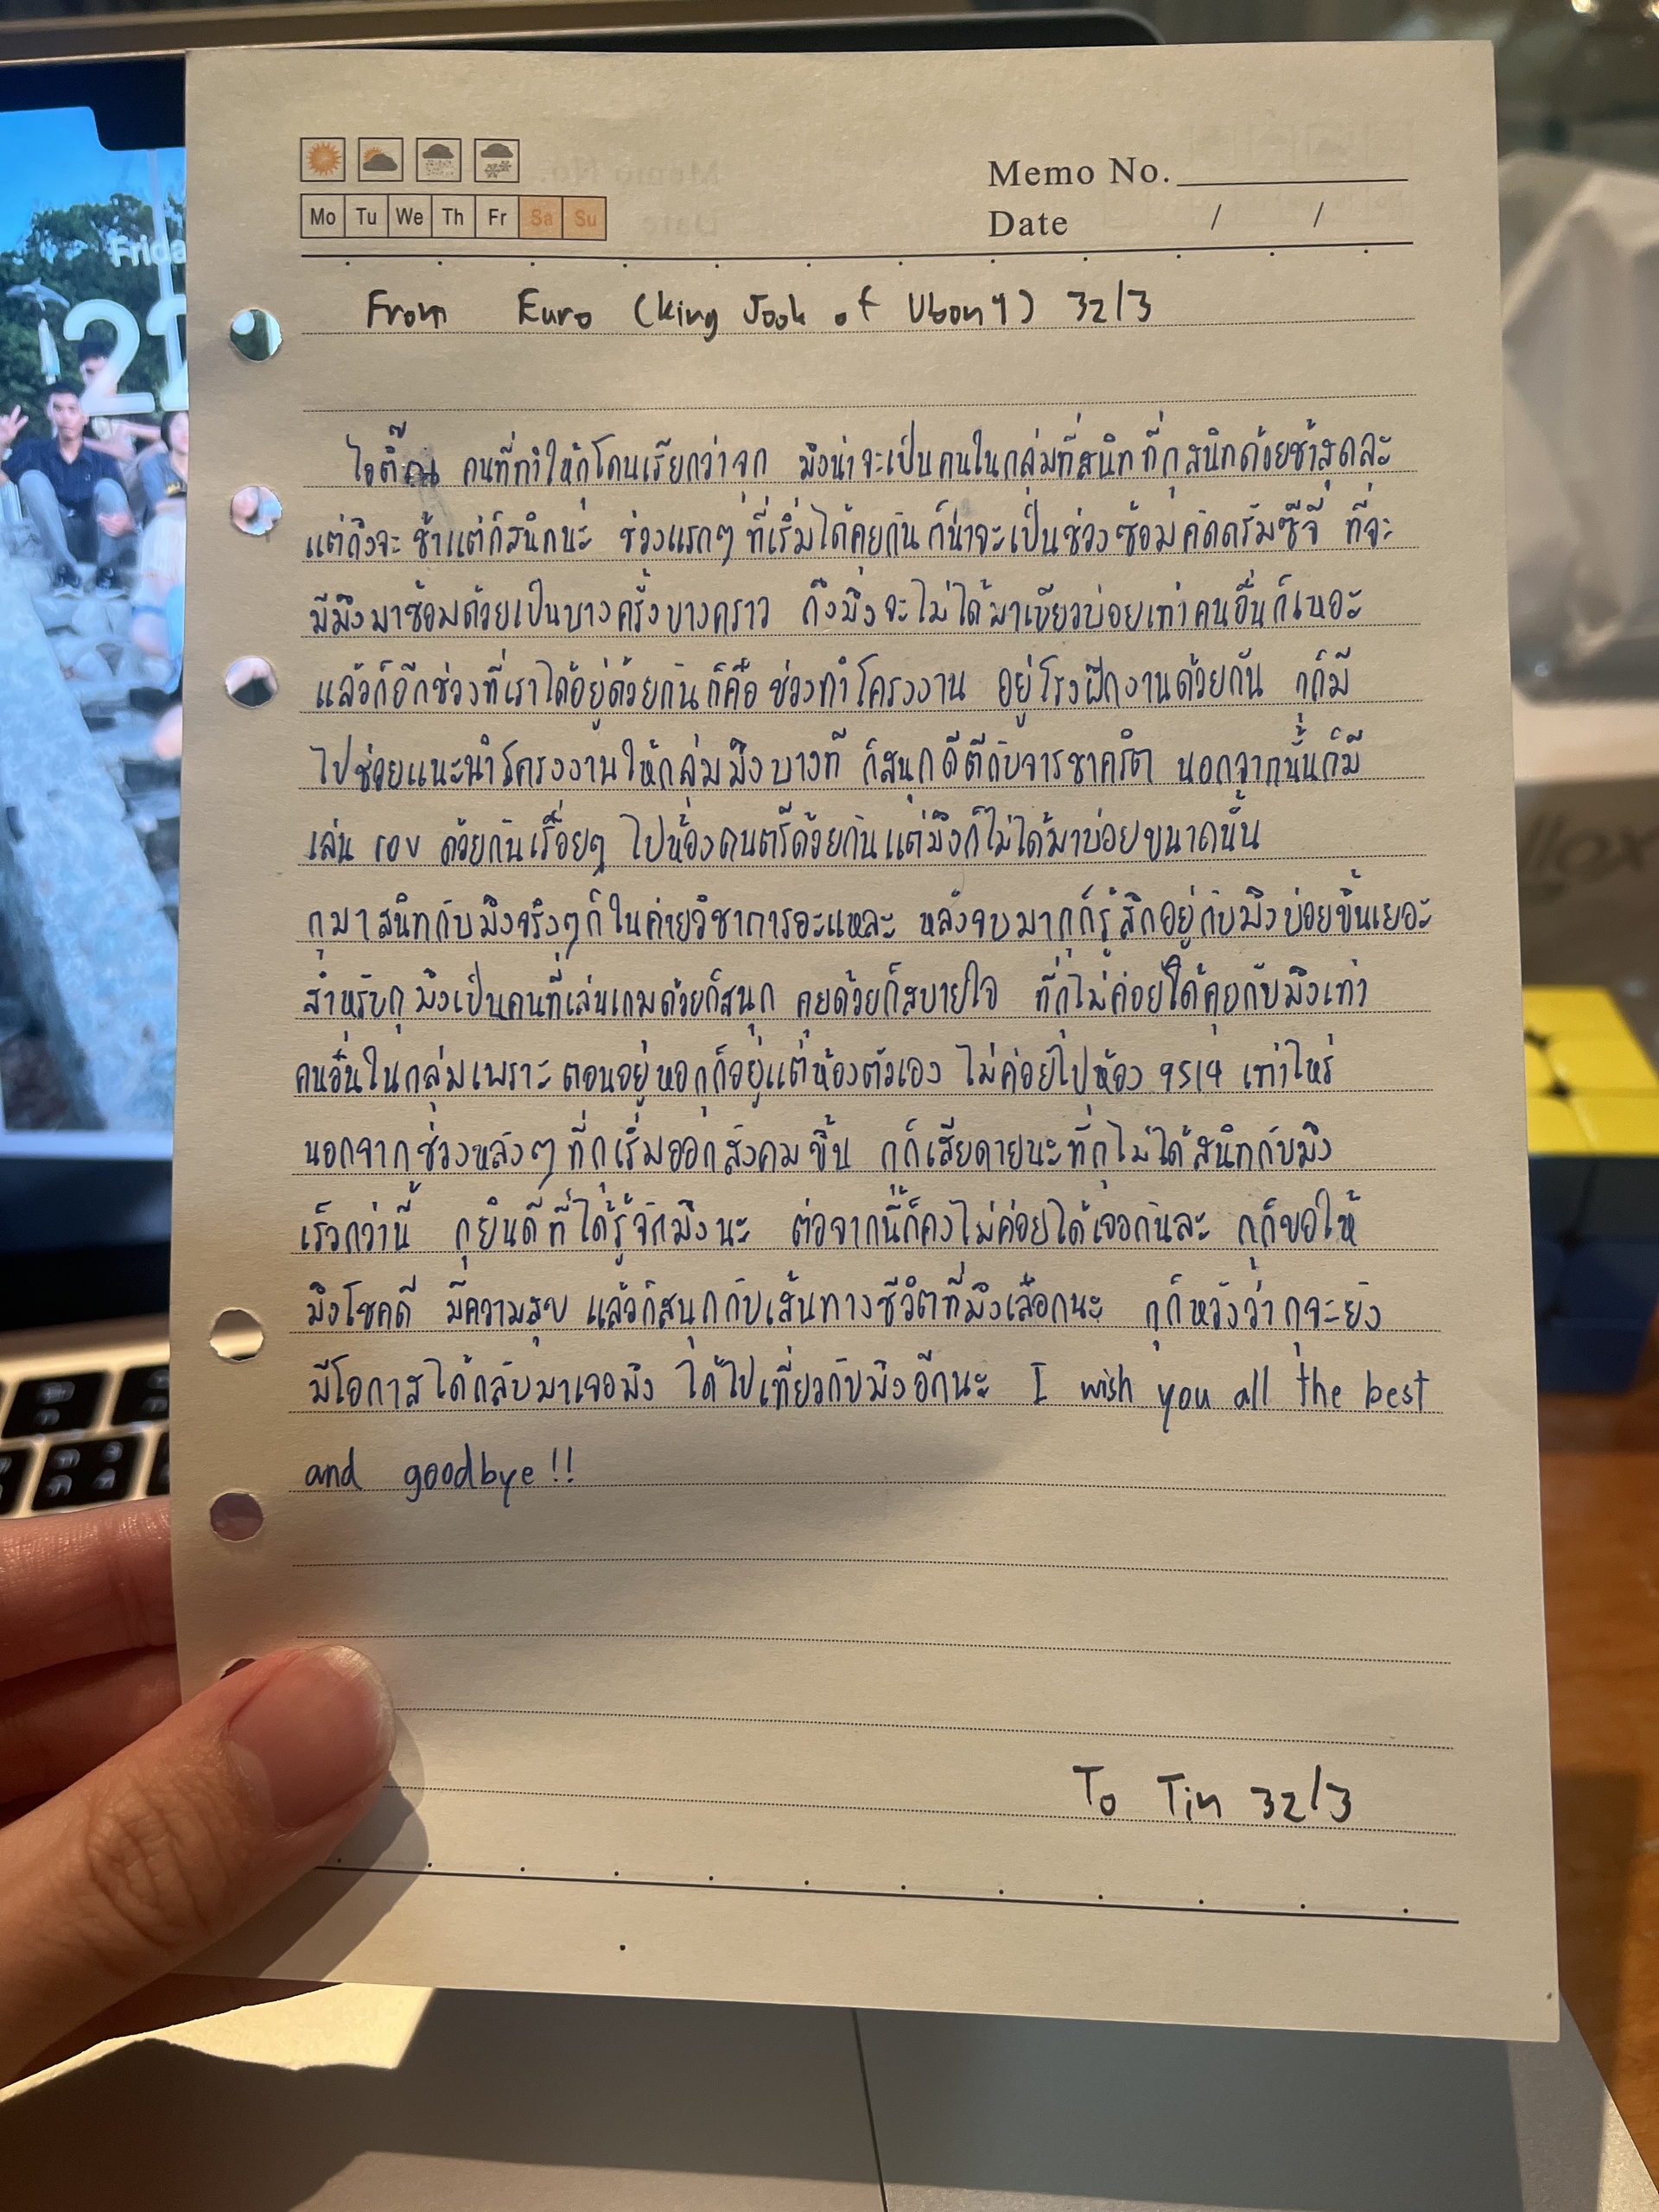 Mo Tu We Th Fr Sa Su
Memo No.
Date / /
From Euro (King Jook of Ubon ๆ) 32/3
ไอติ๊ณ คนที่ทำให้กุโดนเรียกว่าจุก มึงน่าจะเป็นคนในกลุ่มที่สนิทที่กุสนิทด้วยช้าสุดละ
แต่ถึงจะช้าแต่ก็สนิทนะ ช่วงแรกๆ ที่เริ่มได้คุยกัน ก็น่าจะเป็นช่วงซ้อมคัดดรัมซีจี ที่จะ
มีมึงมาซ้อมด้วยเป็นบางครั้งบางคราว ถึงมึงจะไม่ได้มาเขียวบ่อยเท่าคนอื่นก็เหอะ
แล้วก็อีกช่วงที่เราได้อยู่ด้วยกันก็คือ ช่วงทำโครงงาน อยู่โรงฝึกงานด้วยกัน กุก็มี
ไปช่วยแนะนำโครงงานให้กลุ่มมึงบางที ก็สนุกดีตีกับจารชาคริต นอกจากนั้นก็มี
เล่น rov ด้วยกันเรื่อยๆ ไปห้องดนตรีด้วยกัน แต่มึงก็ไม่ได้มาบ่อยขนาดนั้น
กุมาสนิทกับมึงจริงๆ ก็ในค่ายวิชาการอะแหละ หลังจบมากุก็รู้สึกอยู่กับมึงบ่อยขึ้นเยอะ
สำหรับกุ มึงเป็นคนที่เล่นเกมด้วยก็สนุก คุยด้วยก็สบายใจ ที่กุไม่ค่อยได้คุยกับมึงเท่า
คนอื่นในกลุ่มเพราะ ตอนอยู่หอกุก็อยู่แต่ห้องตัวเอง ไม่ค่อยไปห้อง 9514 เท่าไหร่
นอกจากช่วงหลังๆ ที่กุเริ่มออกสังคมขึ้น กุก็เสียดายนะที่กุไม่ได้สนิทกับมึง
เร็วกว่านี้ กุยินดีที่ได้รู้จักมึงนะ ต่อจากนี้ก็คงไม่ค่อยได้เจอกันละ กุก็ขอให้
มึงโชคดี มีความสุข แล้วก็สนุกกับเส้นทางชีวิตที่มึงเลือกนะ กุก็หวังว่ากุจะยัง
มีโอกาสได้กลับมาเจอมึง ได้ไปเที่ยวกับมึงอีกนะ I wish you all the best
and goodbye!!
To Tin 32/3